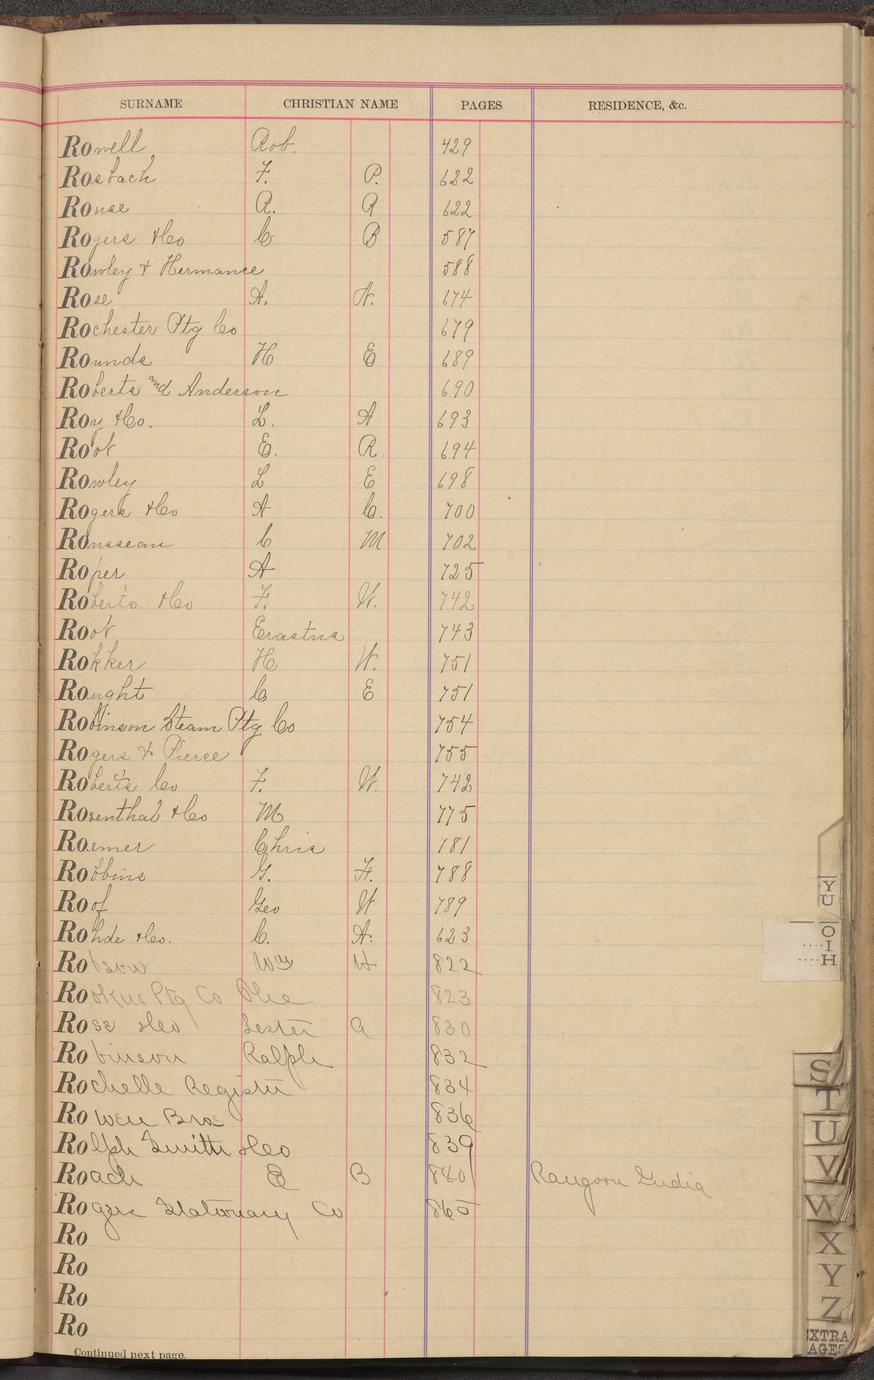 SURNAME CHRISTIAN NAME PAGES RESIDENCE, &c.
Rowell Rob. 429
Rosbach F. P. 622
Rouse A. R 622
Rogers & Co C B 587
Rowley & Hermance 588
Rose A. N. 674
Rochester Ptg Co 679
Rounds H E 689
Roberts and Anderson 690
Roy & Co. L. A 693
Root E. R. 694
Rowley L E 698
Rogers & Co A C. 700
Rousseau C M 702
Roper A 725
Roberts & Co F. W. 742
Root Erastus 743
Rokker H W. 751
Rought C E 751
Robinson Steam Ptg Co 754
Rogers & Pierce 755
Roberts Co F. W. 742
Rosenthal & Co M 775
Roemer Chris 781
Robbins G. F. 788
Roof Geo W 789
Rohde & Co. C. A. 623
Robson Wm H 822
Ro Ptg Co 823
Rose & Co Lester A 830
Robinson Ralph 832
Rochelle Register 834
Rowell Bros 836
Rolph Smith & Co 839
Roach E B 840 Rangoon India
Rogers Stationary Co 865
Ro
Ro
Ro
Ro
Continued next page.
YU
OIH
S
T
U
V
W
X
Y
Z
EXTRA
AGES